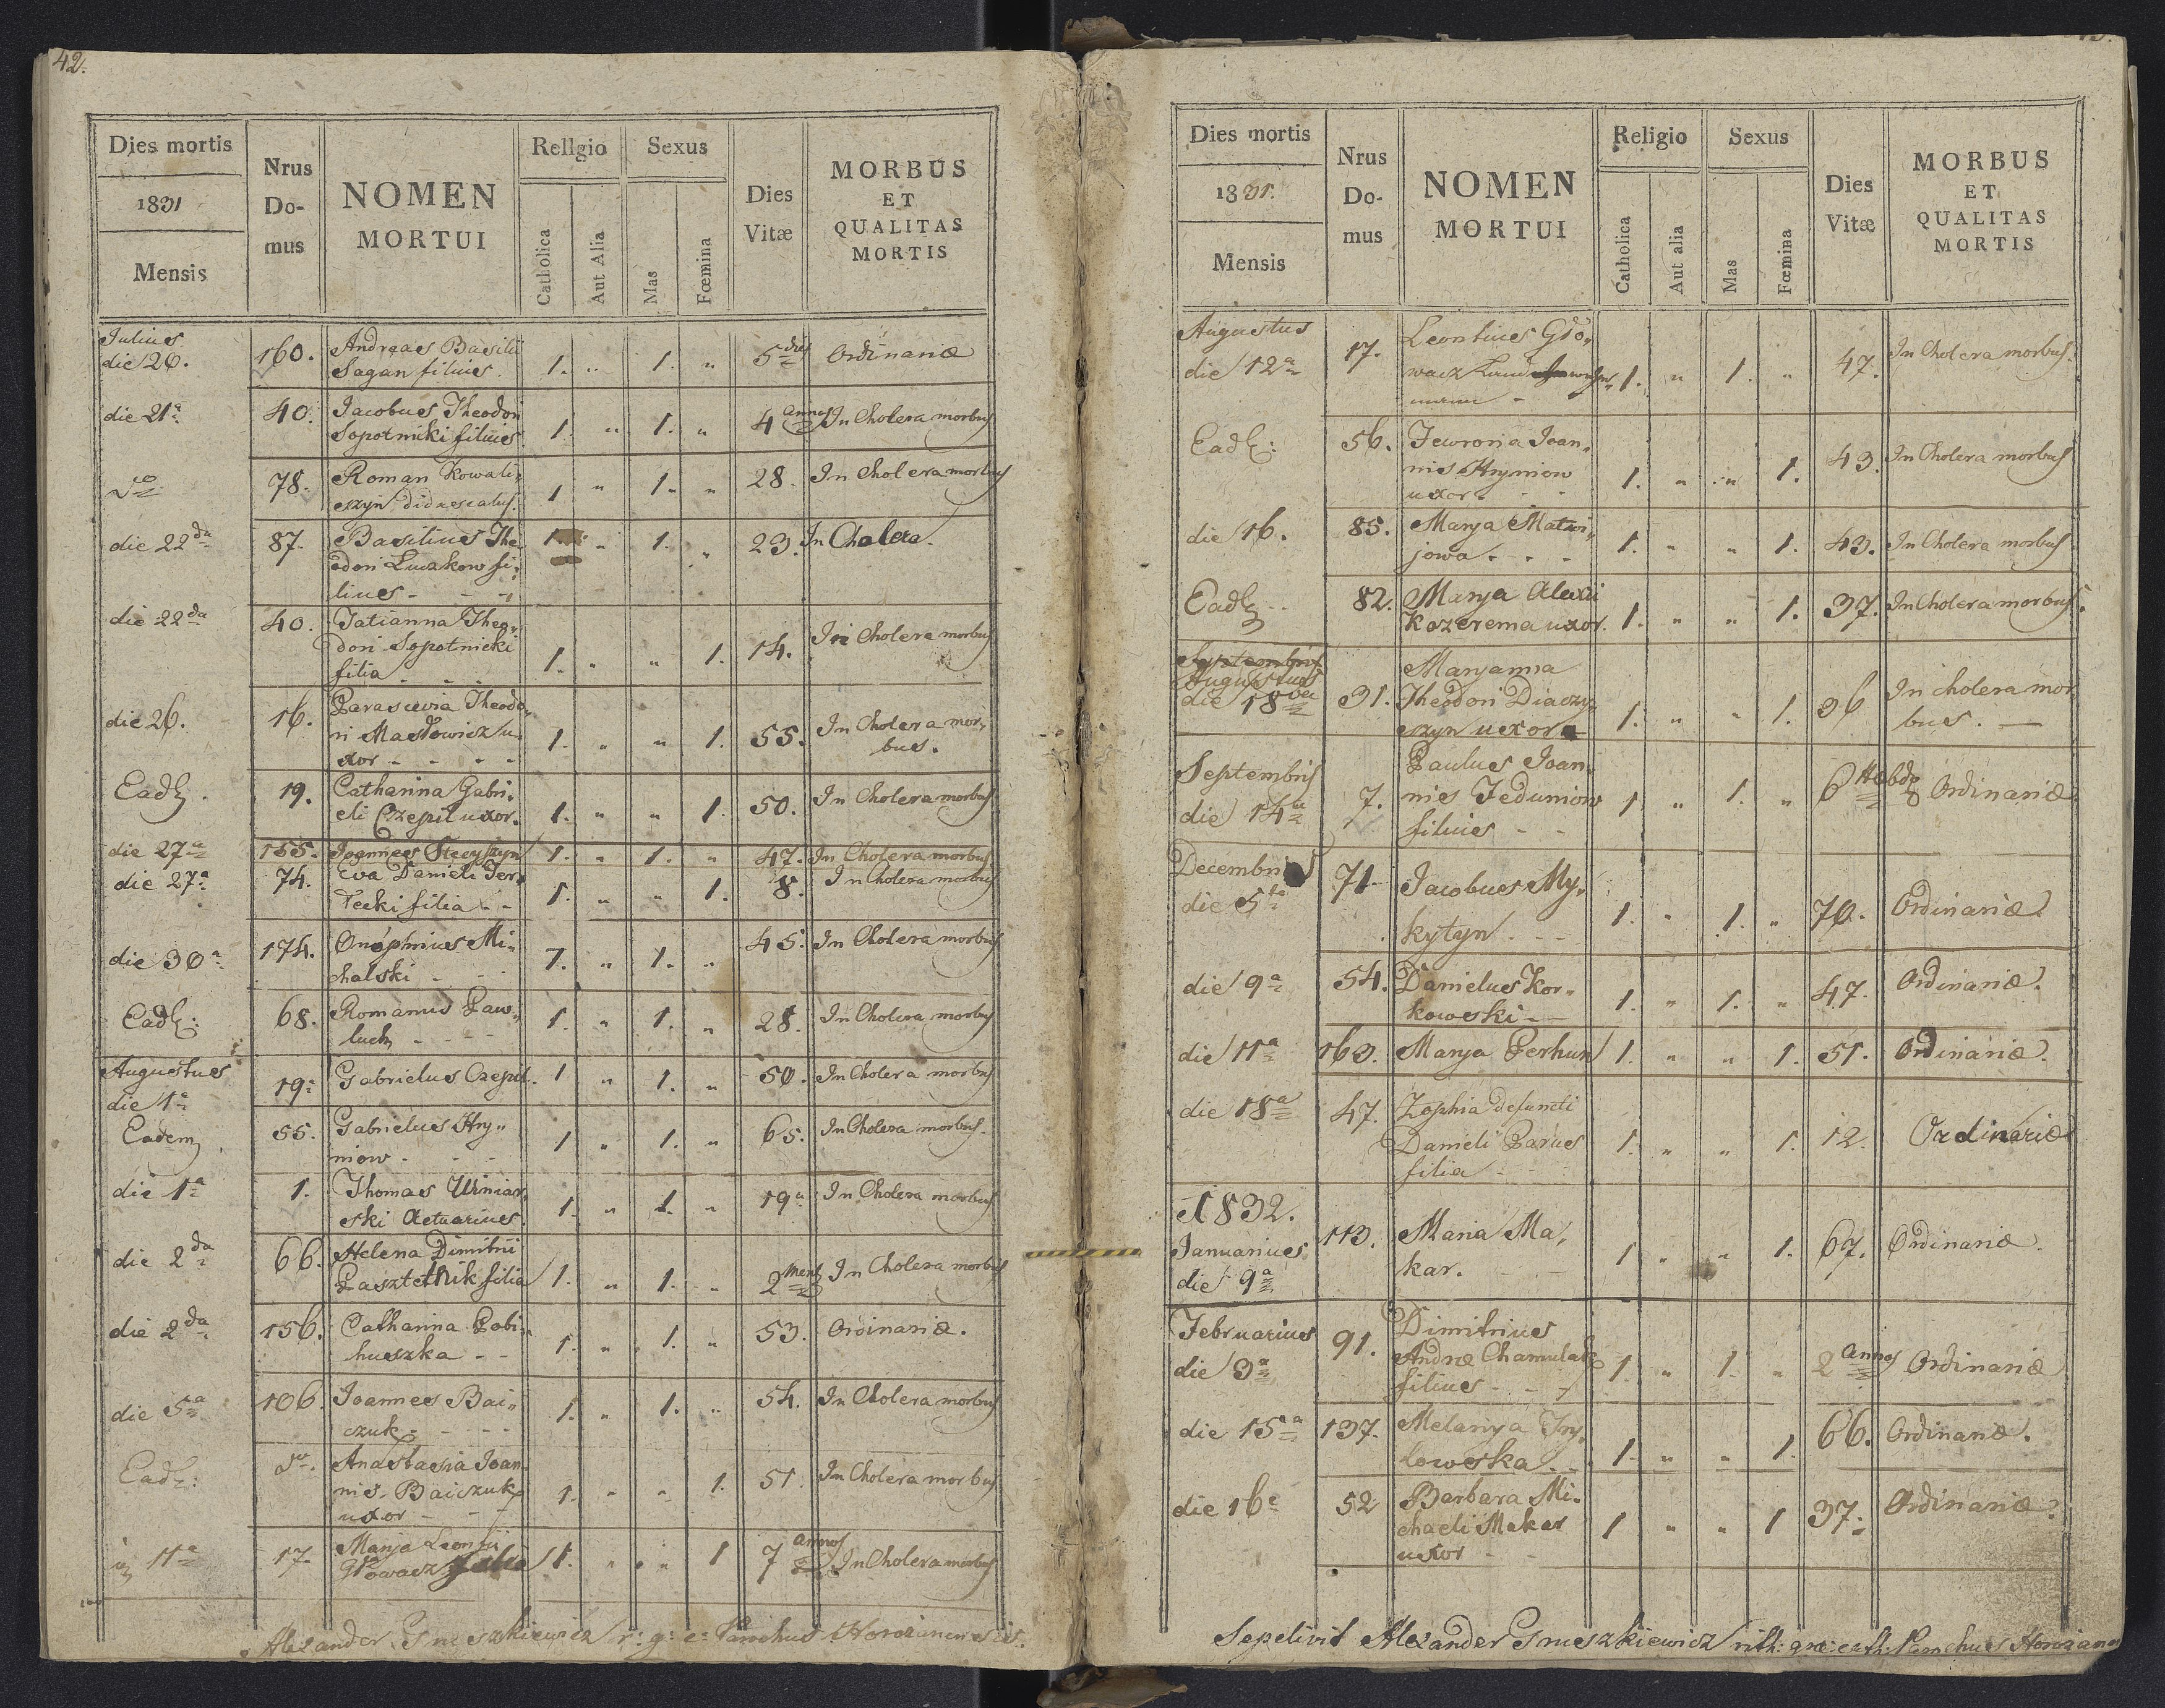 42.
Dies mortis
1831
Mensis
Nrus
Do-
mus
NOMEN
MORTUI
Rellgio
Catholica
Aut Alia
Sexus
Mas
Fœmina
Dies
Vitæ
MORBUS
ET
QUALITAS
MORTIS
Julius
die 20. 160. Andreas Basilii
Sagan filius 1. „ 1. „ 5 dies Ordinariæ
die 21a 40. Jacobus Theodori
Sopotnicki filius 1. „ 1. „ 4 annos In Cholera morbus
do 78. Roman Kowali„
szyn 1 „ 1. „ 28. In Cholera morbus
die 22da 87. Basilius The„
odori Luczakow fi„
lius - - - 1. „ 1. „ 23. In Cholera.
die 22da 40. Tatianna Theo„
dori Sopotnicki
filia - - - 1. „ „ 1. 14. In Cholera morbus
die 26. 16. Parascevia Theodo„
ri Masłowicz u„
xor - - - - 1. „ „ 1. 55. In Cholera mor„
bus.
Eadem. 19. Catharina Gabri„
eli Czepil uxor. 1. „ „ 1. 50. In Cholera morbus
die 27a 155. Joannes Stecyszyn 1. „ 1. „ 47. In Cholera morbus
die 27a 74. Eva Danieli
filia - - 1. „ „ 1. 8. In Cholera morbus
die 30a 174. Onophrius Mi„
chalski - - - 1. „ 1. „ 45. In Cholera morbus
Eadem: 68. Romanus Paw„
luch - - - 1. „ 1. „ 28. In Cholera morbus
Augustus
die 1a 19: Gabrielus Czepil. 1 „ 1. „ 50. In Cholera morbus
Eadem 55. Gabrielus Hry„
niow - - - 1 „ 1. „ 65. In Cholera morbus.
die 1a 1. Thomas Winiar„
ski Actuarius. 1. „ 1. „ 19 „ In Cholera morbus
die 2da 66. Helena Dimitrii
filia 1. „ 1. „ 2 mens In Cholera morbus
die 2da 156. Catharina Pobi„
huszka - - 1. „ 1. „ 53. Ordinariæ.
die 5a 106. Joannes Bai„
czuk - - - - 1. „ 1. „ 54. In Cholera morbus
Eadem: do. Anastasia Joan„
nis Baiczuk
uxor - - - 1. „ „ 1. 51. In Cholera morbus
11a 17. Marja Leontii
Głowacz filia 1. „ „ 1 7 annos In Cholera morbus
Alexander Gmeszkiewicz r: g: c: Parochus Horozanensis.
Dies mortis
1831.
Mensis
Nrus
Do-
mus
NOMEN
MORTUI
Religio
Catholica
Aut alia
Sexus
Mas
Fœmina
Dies
Vitæ
MORBUS
ET
QUALITAS
MORTIS
Augustus
die 12a 17. Leontius Gło„
wacz 1. „ 1. „ 47. In Cholera morbus.
Eadem: 56. Jewronia Joan„
nis Hryniow
uxor. - - 1. „ „ 1. 43. In Cholera morbus
die 16. 85. Marya Matwi„
jowa - - - 1. „ „ 1. 43. In Cholera morbus
Eadem - 82. Marya Alexii
Kozerema uxor. 1. „ „ 1. 37. In Cholera morbus.
Septembris
Augustus
die 18va 31. Maryanna
Theodori Diaczy„
szyn uxor 1. „ „ 1. 36 In cholera mor
bus. —
Septembris
die 14a 7. Paulus Joan„
nis Feduniow
filius - - 1 „ 1. „ 6 Hebdo Ordinariæ
Decembris
die 5ta 71. Jacobus My„
kytyn - - - 1. „ 1. „ 70. Ordinariæ.
die 9a 54. Danielus Kor„
kowski - - 1. „ 1. „ 47. Ordinariæ.
die 11a 163. Marya Perhun 1. „ „ 1. 51. Ordinariæ.
die 18a 47. Zophia defuncti
Danieli Parus
filia - - - 1. „ „ 1. 12. Ordinariæ
1832.
Januarius
die 9a 113. Maria Ma„
kar. - - 1 „ „ 1. 67. Ordinariæ.
Februarius
die 3a 91. Dimitrius
Andræ Chamulak
filius - - - 1. „ 1. „ 2 annos Ordinariæ
die 15a 137. Melanya Try„
lowska - - 1. „ „ 1. 66. Ordinariæ.
die 16a 52 Barbara Mi„
chaeli Makar
uxor - - 1 „ „ 1 37. Ordinariæ.
Sepelivit Alexander Gmeszkiewicz rith: græ: cath: Parochus Horozanen